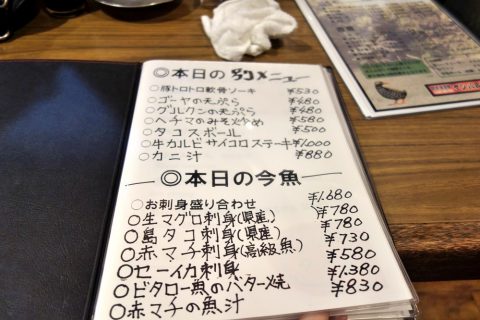 ◎本日の別メニュー
○豚トロトロ軟骨ソーキ ¥530
○ゴーヤの天ぷら ¥480
○グルクンの天ぷら ¥480
○ヘチマのみそ炒め ¥580
○タコスボール ¥500
○牛カルビサイコロステーキ ¥1,000
○カニ汁 ¥880
◎本日の今魚
○お刺身盛り合わせ ¥1,680
○生マグロ刺身(県産) ¥780
○島タコ刺身(県産) ¥780
○赤マチ刺身(高級魚) ¥730
○セーイカ刺身 ¥580
○ビタロー魚のバター焼 ¥1,380
○赤マチの魚汁 ¥830